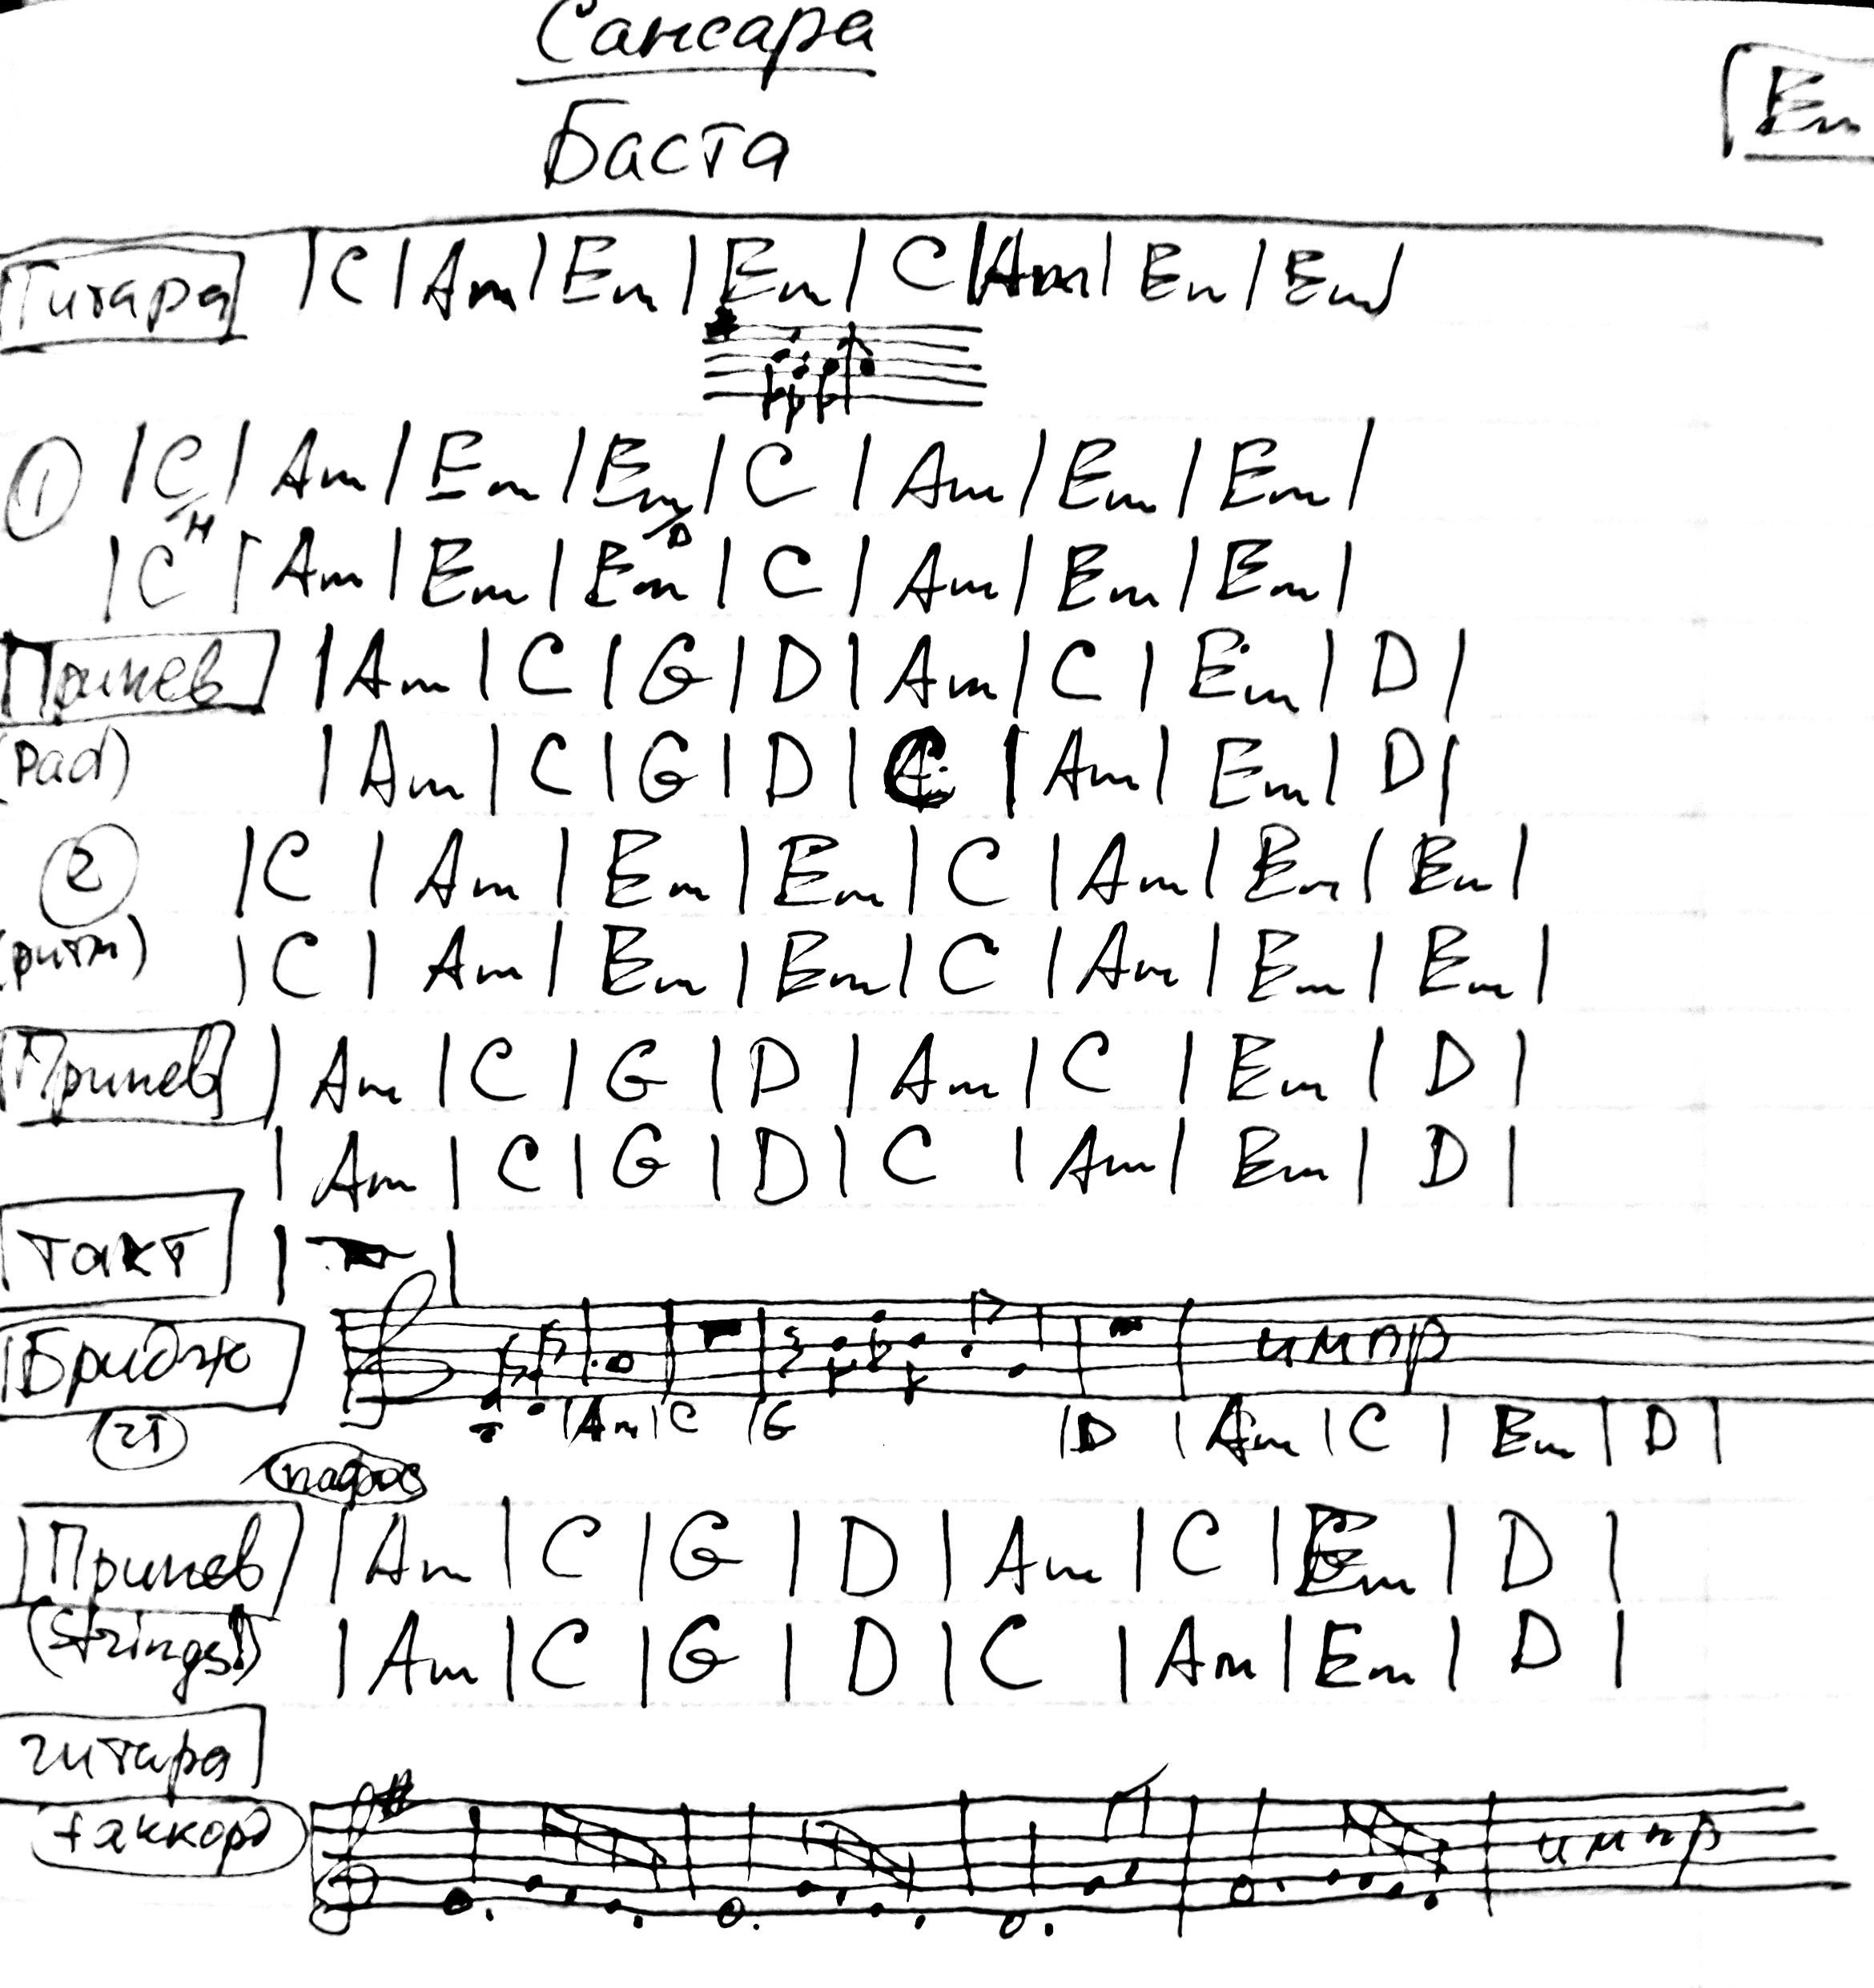 Сансара
Баста
Em
Гитара |C|Am|Em|Em|C|Am|Em|Em|
① |C|Am|Em|Em|C|Am|Em|Em|
/H /D
|C|Am|Em|Em|C|Am|Em|Em|
Припев |Am|C|G|D|Am|C|Em|D|
(Pad) |Am|C|G|D|C|Am|Em|D|
② |C|Am|Em|Em|C|Am|Em|Em|
(ритм) |C|Am|Em|Em|C|Am|Em|Em|
Припев |Am|C|G|D|Am|C|Em|D|
|Am|C|G|D|C|Am|Em|D|
такт
Бридж импр
|Am|C|G|D|Am|C|Em|D|
пафос
Припев |Am|C|G|D|Am|C|Em|D|
(Strings!) |Am|C|G|D|C|Am|Em|D|
гитара
+аккорд импр